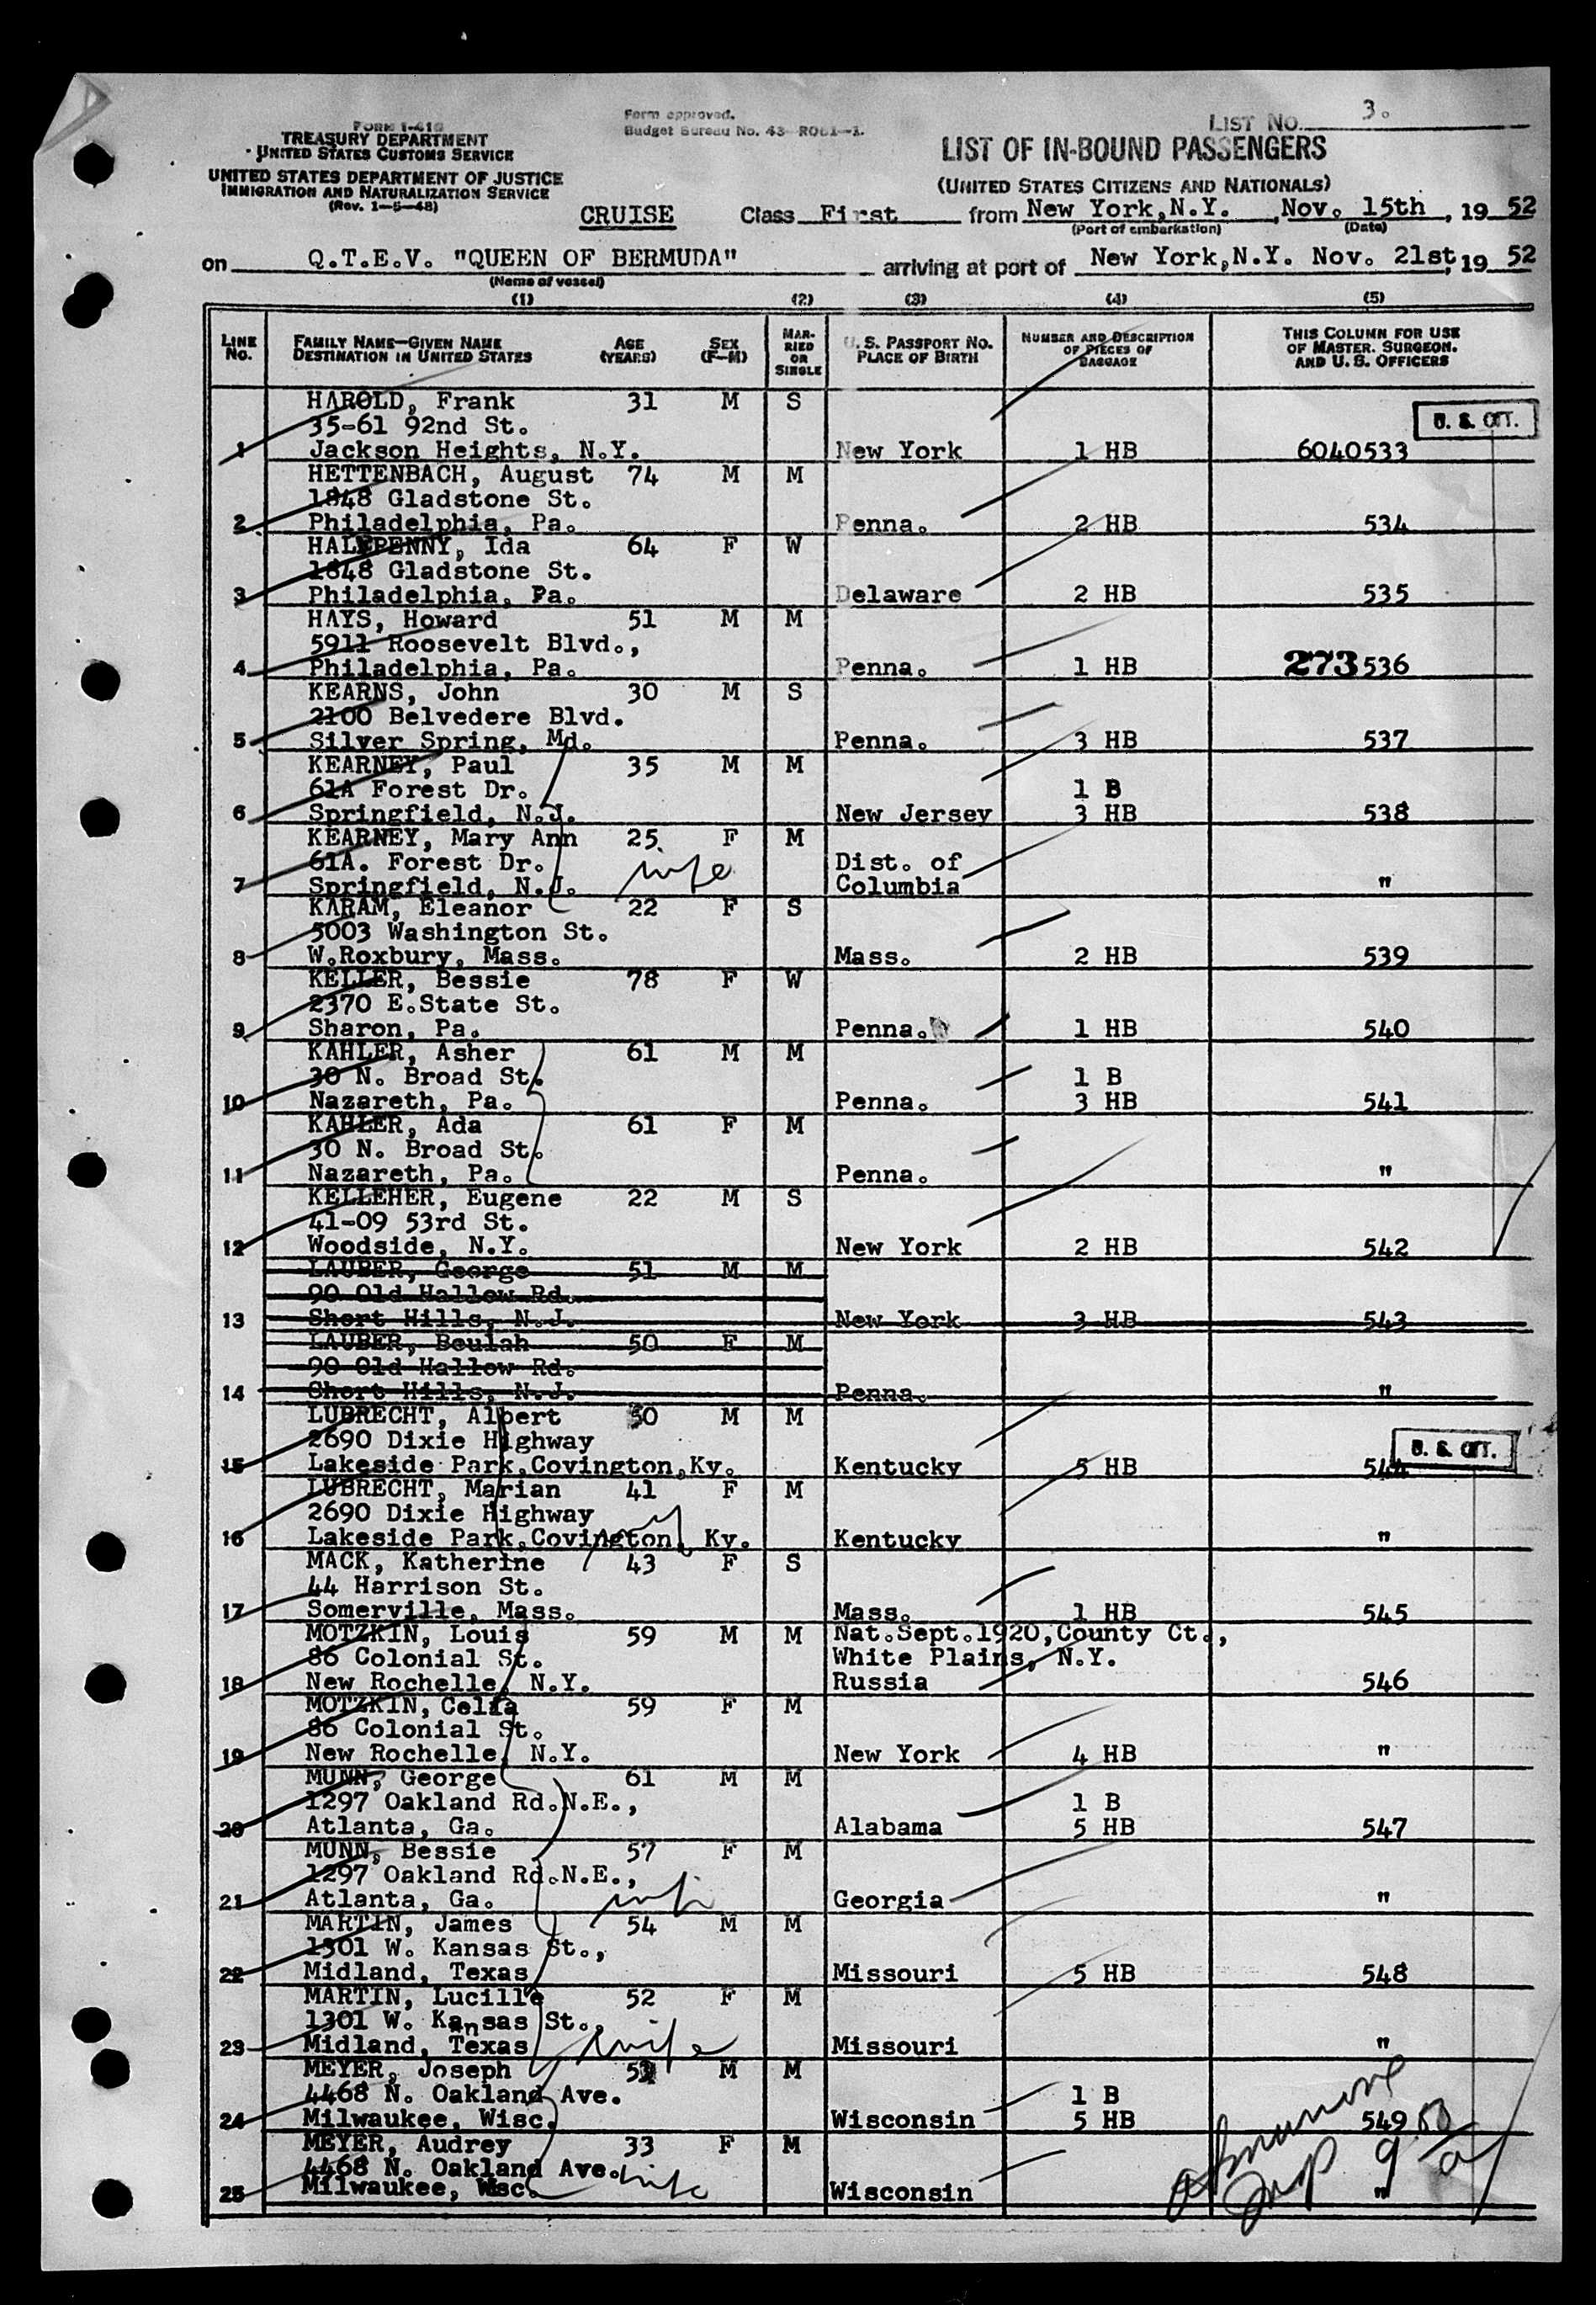 FORM I-416
TREASURY DEPARTMENT
UNITED STATES CUSTOMS SERVICE
UNITED STATES DEPARTMENT OF JUSTICE
IMMIGRATION AND NATURALIZATION SERVICE
(Rev. 1-5-48)
Form approved.
Budget Bureau No. 43-R061-1.
LIST NO. 3.
LIST OF IN-BOUND PASSENGERS
(UNITED STATES CITIZENS AND NATIONALS)
CRUISE Class First from New York, N.Y., Nov. 15th, 19 52
(Port of embarkation) (Date)
on Q.T.E.V. "QUEEN OF BERMUDA" arriving at port of New York, N.Y. Nov. 21st, 19 52
(Name of vessel)
(1) (2) (3) (4) (5)
LINE No. FAMILY NAME—GIVEN NAME DESTINATION IN UNITED STATES AGE (YEARS) SEX (F-M) MARRIED OR SINGLE U. S. PASSPORT NO. PLACE OF BIRTH NUMBER AND DESCRIPTION OF PIECES OF BAGGAGE THIS COLUMN FOR USE OF MASTER, SURGEON, AND U. S. OFFICERS
HAROLD, Frank 31 M S
35-61 92nd St. U. S. CIT.
1 Jackson Heights, N.Y. New York 1 HB 6040533
HETTENBACH, August 74 M M
1848 Gladstone St.
2 Philadelphia, Pa. Penna. 2 HB 534
HALYPENNY, Ida 64 F W
1848 Gladstone St.
3 Philadelphia, Pa. Delaware 2 HB 535
HAYS, Howard 51 M M
5911 Roosevelt Blvd.,
4 Philadelphia, Pa. Penna. 1 HB 273 536
KEARNS, John 30 M S
2100 Belvedere Blvd.
5 Silver Spring, Md. Penna. 3 HB 537
KEARNEY, Paul 35 M M
61A Forest Dr. 1 B
6 Springfield, N.J. New Jersey 3 HB 538
KEARNEY, Mary Ann 25 F M
61A. Forest Dr. wife Dist. of
7 Springfield, N.J. Columbia "
KARAM, Eleanor 22 F S
5003 Washington St.
8 W.Roxbury, Mass. Mass. 2 HB 539
KELLER, Bessie 78 F W
2370 E.State St.
9 Sharon, Pa. Penna. 1 HB 540
KAHLER, Asher 61 M M
30 N. Broad St. 1 B
10 Nazareth, Pa. Penna. 3 HB 541
KAHLER, Ada 61 F M
30 N. Broad St.
11 Nazareth, Pa. Penna. "
KELLEHER, Eugene 22 M S
41-09 53rd St.
12 Woodside, N.Y. New York 2 HB 542
LAUBER, George 51 M M
90 Old Hallow Rd.
13 Short Hills, N.J. New York 3 HB 543
LAUBER, Beulah 50 F M
90 Old Hallow Rd.
14 Short Hills, N.J. Penna. "
LUBRECHT, Albert 50 M M
2690 Dixie Highway U. S. CIT.
15 Lakeside Park,Covington,Ky. Kentucky 5 HB 544
LUBRECHT, Marian 41 F M
2690 Dixie Highway
16 Lakeside Park,Covington, Ky. Kentucky "
MACK, Katherine 43 F S
44 Harrison St.
17 Somerville, Mass. Mass. 1 HB 545
MOTZKIN, Louis 59 M M Nat.Sept.1920,County Ct.,
86 Colonial St. White Plains, N.Y.
18 New Rochelle, N.Y. Russia 546
MOTZKIN, Celia 59 F M
86 Colonial St.
19 New Rochelle, N.Y. New York 4 HB "
MUNN, George 61 M M
1297 Oakland Rd.N.E., 1 B
20 Atlanta, Ga. Alabama 5 HB 547
MUNN, Bessie 57 F M
1297 Oakland Rd.N.E.,
21 Atlanta, Ga. wife Georgia "
MARTIN, James 54 M M
1301 W. Kansas St.,
22 Midland, Texas Missouri 5 HB 548
MARTIN, Lucille 52 F M
1301 W. Kansas St.,
23 Midland, Texas wife Missouri "
MEYER, Joseph M M
4468 N. Oakland Ave. 1 B
24 Milwaukee, Wisc. Wisconsin 5 HB 549
MEYER, Audrey 33 F M
4468 N. Oakland Ave. wife
25 Milwaukee, Wisc. Wisconsin "